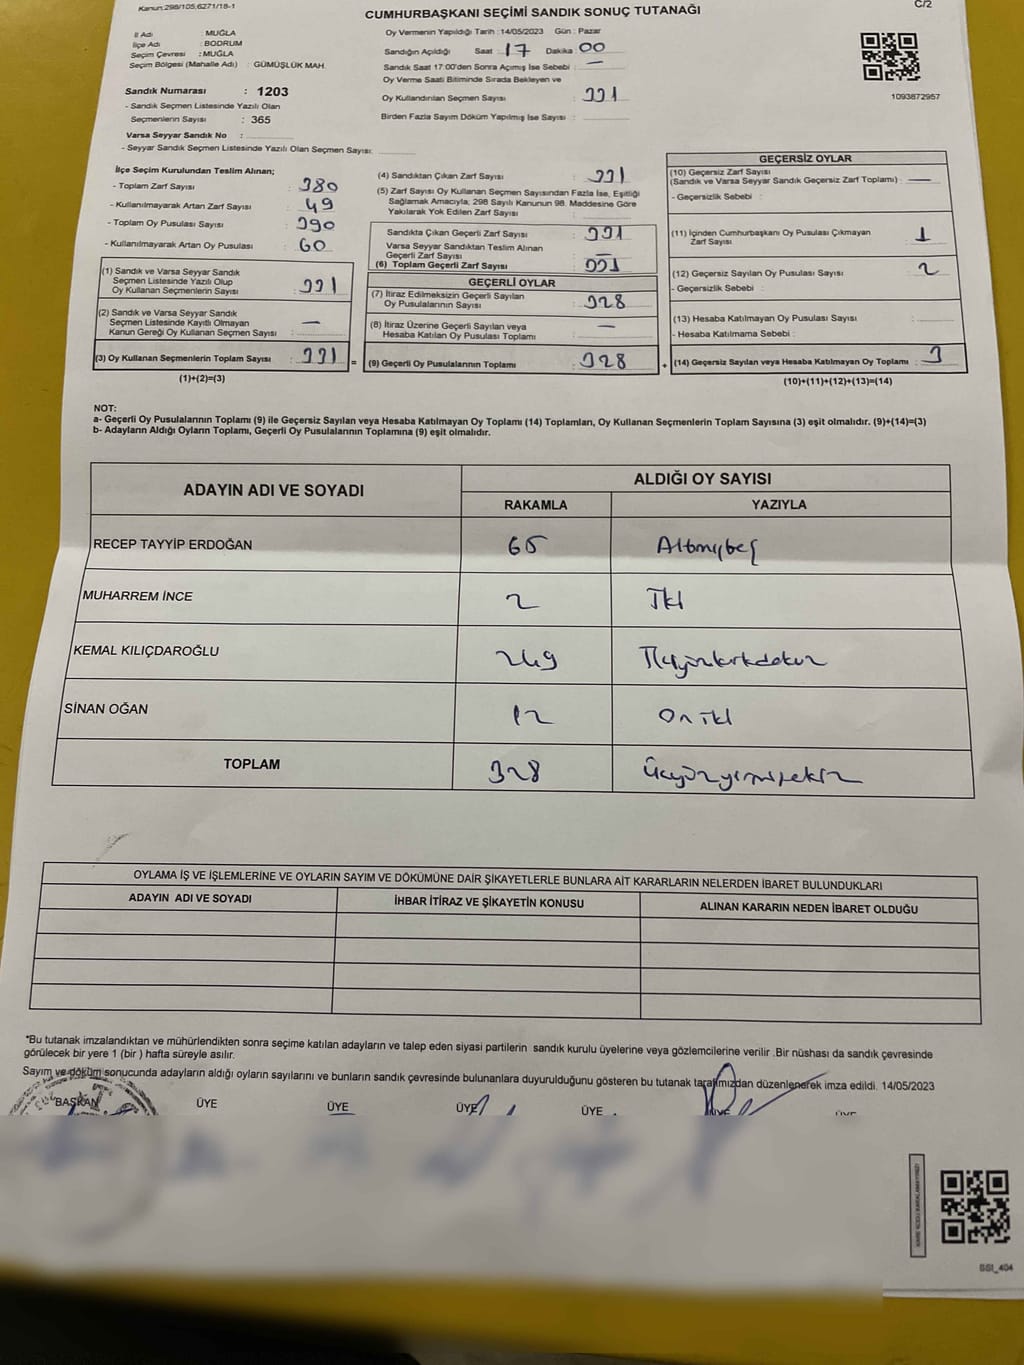 Kanun:298/105;6271/18-1
C/2
CUMHURBAŞKANI SEÇİMİ SANDIK SONUÇ TUTANAĞI
İl Adı : MUĞLA
İlçe Adı : BODRUM
Seçim Çevresi : MUĞLA
Seçim Bölgesi (Mahalle Adı) : GÜMÜŞLÜK MAH.
Sandık Numarası : 1203
- Sandık Seçmen Listesinde Yazılı Olan
Seçmenlerin Sayısı : 365
Varsa Seyyar Sandık No :
- Seyyar Sandık Seçmen Listesinde Yazılı Olan Seçmen Sayısı:
Oy Vermenin Yapıldığı Tarih : 14/05/2023 Gün : Pazar
Sandığın Açıldığı Saat : 17 Dakika : 00
Sandık Saat 17:00'den Sonra Açımış İse Sebebi : —
Oy Verme Saati Bitiminde Sırada Bekleyen ve
Oy Kullandırılan Seçmen Sayısı : 331
Birden Fazla Sayım Döküm Yapılmış İse Sayısı :
1093872957
İlçe Seçim Kurulundan Teslim Alınan;
- Toplam Zarf Sayısı : 380
- Kullanılmayarak Artan Zarf Sayısı : 49
- Toplam Oy Pusulası Sayısı : 390
- Kullanılmayarak Artan Oy Pusulası : 60
(1) Sandık ve Varsa Seyyar Sandık
Seçmen Listesinde Yazılı Olup
Oy Kullanan Seçmenlerin Sayısı : 331
(2) Sandık ve Varsa Seyyar Sandık
Seçmen Listesinde Kayıtlı Olmayan
Kanun Gereği Oy Kullanan Seçmen Sayısı : —
(3) Oy Kullanan Seçmenlerin Toplam Sayısı : 331 =
(1)+(2)=(3)
(4) Sandıktan Çıkan Zarf Sayısı : 331
(5) Zarf Sayısı Oy Kullanan Seçmen Sayısından Fazla İse, Eşitliği
Sağlamak Amacıyla; 298 Sayılı Kanunun 98. Maddesine Göre
Yakılarak Yok Edilen Zarf Sayısı :
Sandıkta Çıkan Geçerli Zarf Sayısı : 331
Varsa Seyyar Sandıktan Teslim Alınan
Geçerli Zarf Sayısı : —
(6) Toplam Geçerli Zarf Sayısı : 331
GEÇERLİ OYLAR
(7) İtiraz Edilmeksizin Geçerli Sayılan
Oy Pusulalarının Sayısı : 328
(8) İtiraz Üzerine Geçerli Sayılan veya
Hesaba Katılan Oy Pusulası Toplamı : —
(9) Geçerli Oy Pusulalarının Toplamı : 328 +
GEÇERSİZ OYLAR
(10) Geçersiz Zarf Sayısı
(Sandık ve Varsa Seyyar Sandık Geçersiz Zarf Toplamı) : —
- Geçersizlik Sebebi :
(11) İçinden Cumhurbaşkanı Oy Pusulası Çıkmayan
Zarf Sayısı : 1
(12) Geçersiz Sayılan Oy Pusulası Sayısı : 2
- Geçersizlik Sebebi :
(13) Hesaba Katılmayan Oy Pusulası Sayısı :
- Hesaba Katılmama Sebebi :
(14) Geçersiz Sayılan veya Hesaba Katılmayan Oy Toplamı : 3
(10)+(11)+(12)+(13)=(14)
NOT:
a- Geçerli Oy Pusulalarının Toplamı (9) ile Geçersiz Sayılan veya Hesaba Katılmayan Oy Toplamı (14) Toplamları, Oy Kullanan Seçmenlerin Toplam Sayısına (3) eşit olmalıdır. (9)+(14)=(3)
b- Adayların Aldığı Oyların Toplamı, Geçerli Oy Pusulalarının Toplamına (9) eşit olmalıdır.
ADAYIN ADI VE SOYADI
ALDIĞI OY SAYISI
RAKAMLA YAZIYLA
RECEP TAYYİP ERDOĞAN 65 Altmışbeş
MUHARREM İNCE 2 İki
KEMAL KILIÇDAROĞLU 249 İkiyüzkırkdokuz
SİNAN OĞAN 12 Oniki
TOPLAM 328 Üçyüzyirmisekiz
OYLAMA İŞ VE İŞLEMLERİNE VE OYLARIN SAYIM VE DÖKÜMÜNE DAİR ŞİKAYETLERLE BUNLARA AİT KARARLARIN NELERDEN İBARET BULUNDUKLARI
ADAYIN ADI VE SOYADI İHBAR İTİRAZ VE ŞİKAYETİN KONUSU ALINAN KARARIN NEDEN İBARET OLDUĞU
*Bu tutanak imzalandıktan ve mühürlendikten sonra seçime katılan adayların ve talep eden siyasi partilerin sandık kurulu üyelerine veya gözlemcilerine verilir .Bir nüshası da sandık çevresinde
görülecek bir yere 1 (bir ) hafta süreyle asılır.
Sayım ve döküm sonucunda adayların aldığı oyların sayılarını ve bunların sandık çevresinde bulunanlara duyurulduğunu gösteren bu tutanak tarafımızdan düzenlenerek imza edildi. 14/05/2023
BAŞKAN ÜYE ÜYE ÜYE ÜYE ÜYE ÜYE
SSI_404